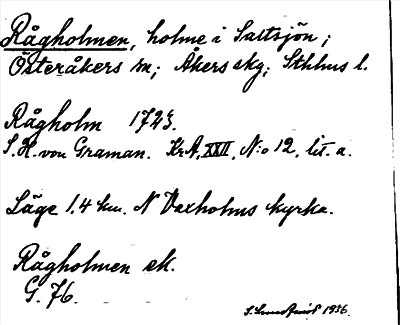 Rågholmen, holme i Saltsjön;
Österåkers sn; Åkers skg; Sthlms l.
Rågholm 1723.
S. H. von Graman. Kr.A. XXII, N:o 12, lit. a.
Läge 1.4 km. N Vaxholms kyrka.
Rågholmen ek.
G. 76.
1936.